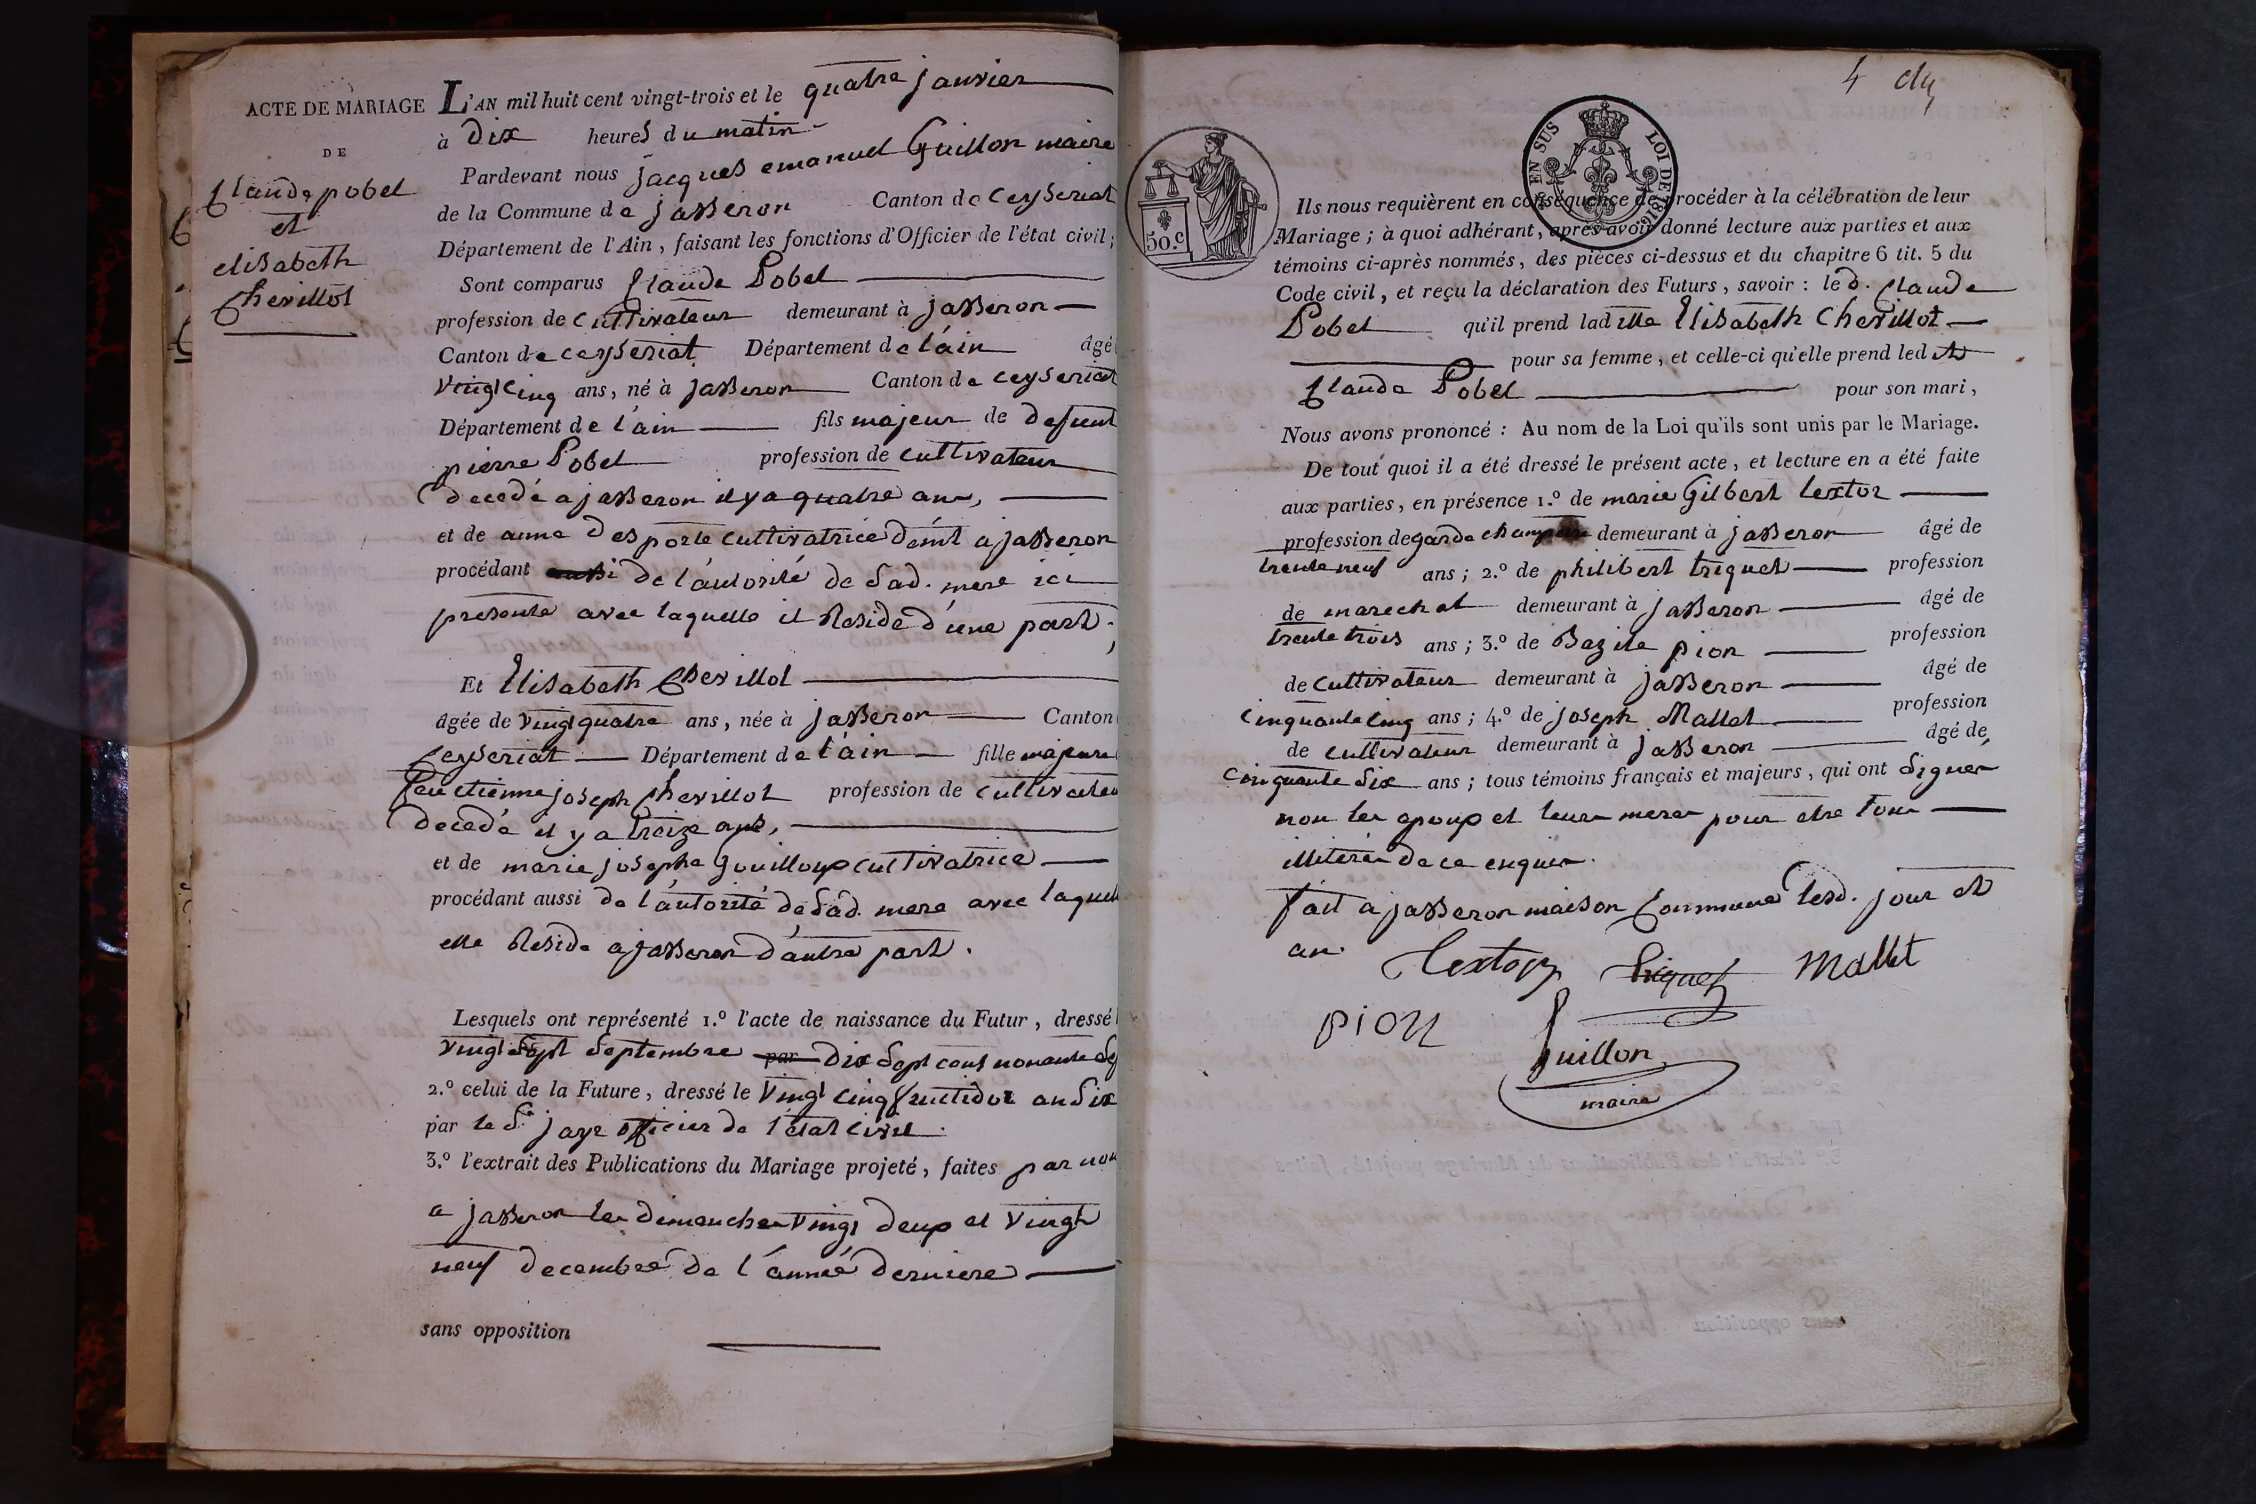 ACTE DE MARIAGE
DE
Claude pobel
et
elisabeth
Chevillot
L'AN mil huit cent vingt-trois et le quatre janvier
à dix heures du matin
Pardevant nous jacques emanuel Guillon maire
de la Commune de jasseron Canton de Ceyseriat
Département de l'Ain, faisant les fonctions d'Officier de l'état civil;
Sont comparus Claude Pobel
profession de Cultivateur demeurant à jasseron
Canton de ceyseriat Département de l'ain âgé
vingt cinq ans, né à jasseron Canton de ceyseriat
Département de l'ain fils majeur de defunt
pierre Pobel profession de cultivateur
decedé a jasseron il y a quatre ans,
et de anne desporte cultivatrice demt a jasseron
procédant aussi de l'autorité de sad. mere ici
presente avec laquelle il Reside d'une part;
Et Elisabeth Chevillot
âgée de vingt quatre ans, née à jasseron Canton
Ceyseriat Département de l'ain fille majeure
feu etienne joseph Chevillot profession de cultivateu
decedé il y a treize ans,
et de marie josephe Gouilloux cultivatrice
procédant aussi de l'autorité de sad. mere avec laquell
elle Reside a jasseron d'autre part.
Lesquels ont représenté 1.º l'acte de naissance du Futur, dressé
vingt sept septembre par dix sept cent nonante
2.º celui de la Future, dressé le vingt cinq fructidor an six
par le Sr. jaye officier de l'état civil.
3.º l'extrait des Publications du Mariage projeté, faites par nou
a jasseron les dimanches vingt deux et vingt
neuf decembre de l'année derniere
sans opposition
4
50.c
EN SUS LOI DE 1816.
Ils nous requièrent en conséquence de procéder à la célébration de leur
Mariage; à quoi adhérant, après avoir donné lecture aux parties et aux
témoins ci-après nommés, des pièces ci-dessus et du chapitre 6 tit. 5 du
Code civil, et reçu la déclaration des Futurs, savoir: le d. Claude
Pobel qu'il prend lad ille Elisabeth Chevillot
pour sa femme, et celle-ci qu'elle prend led
Claude Pobel pour son mari,
Nous avons prononcé: Au nom de la Loi qu'ils sont unis par le Mariage.
De tout quoi il a été dressé le présent acte, et lecture en a été faite
aux parties, en présence 1.º de marie Gilbert textor
profession de garde champetre demeurant à jasseron âgé de
trente neuf ans; 2.º de philibert triquet profession
de marechal demeurant à jasseron âgé de
trente trois ans; 3.º de Bazile pion profession
de cultivateur demeurant à jasseron âgé de
cinquante cinq ans; 4.º de joseph Mallet profession
de cultivateur demeurant à jasseron âgé de
cinquante six ans; tous témoins français et majeurs, qui ont signer
non les epoux et leurs meres pour etre tous
illiterés de ce enquis.
fait a jasseron maison Commune lesd. jour et
an.
Textor Triquet Mallet
pion
Guillon
maire